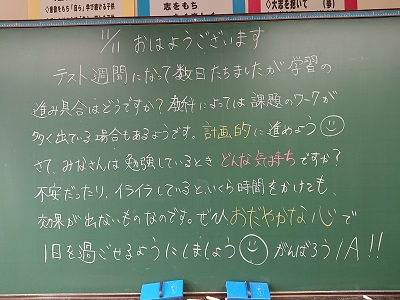 志をもち
大志を抱いて (春)
11/11 おはようございます
テスト週間になって数日たちましたが学習の
進み具合はどうですか?教科によっては課題のワークが
多く出ている場合もあるようです。計画的に進めよう
さて、みなさんは勉強しているときどんな気持ちですか?
不安だったり、イライラしているといくら時間をかけても、
効果が出ないものなのです。ぜひおだやかな心で
1日を過ごせるようにしましょう がんばろう1A!!